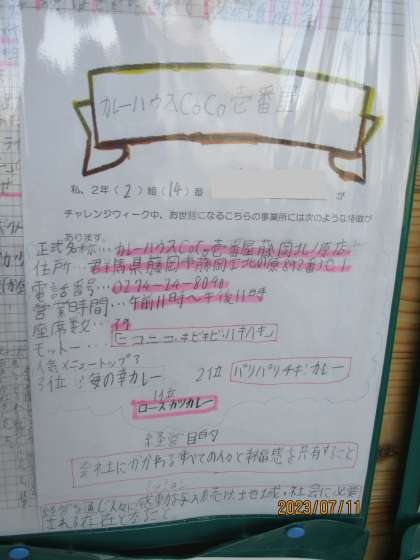 カレーハウスCoCo壱番屋
私、2年(2)組(14)番 が
チャレンジウィーク中、お世話になるこちらの事業所には次のような特徴が
あります。
正式名称…カレーハウスCoCo壱番屋藤岡北ノ原店
住所…群馬県藤岡市藤岡字北の原892番
電話番号…0274-24-8090
営業時間…午前11時〜午後11時
座席数…39
モットー…「ニコニコ・キビキビ・ハキハキ」
人気メニュートップ3
3位 海の幸カレー 2位 パリパリチキンカレー
1位
ロースカツカレー
経営目的
会社にかかわるすべての人々と幸福感を共有すること
ミッション
経営を通じ人々に感動を与え続け、地域、社会に必要
とされる存在となること
2023/07/11